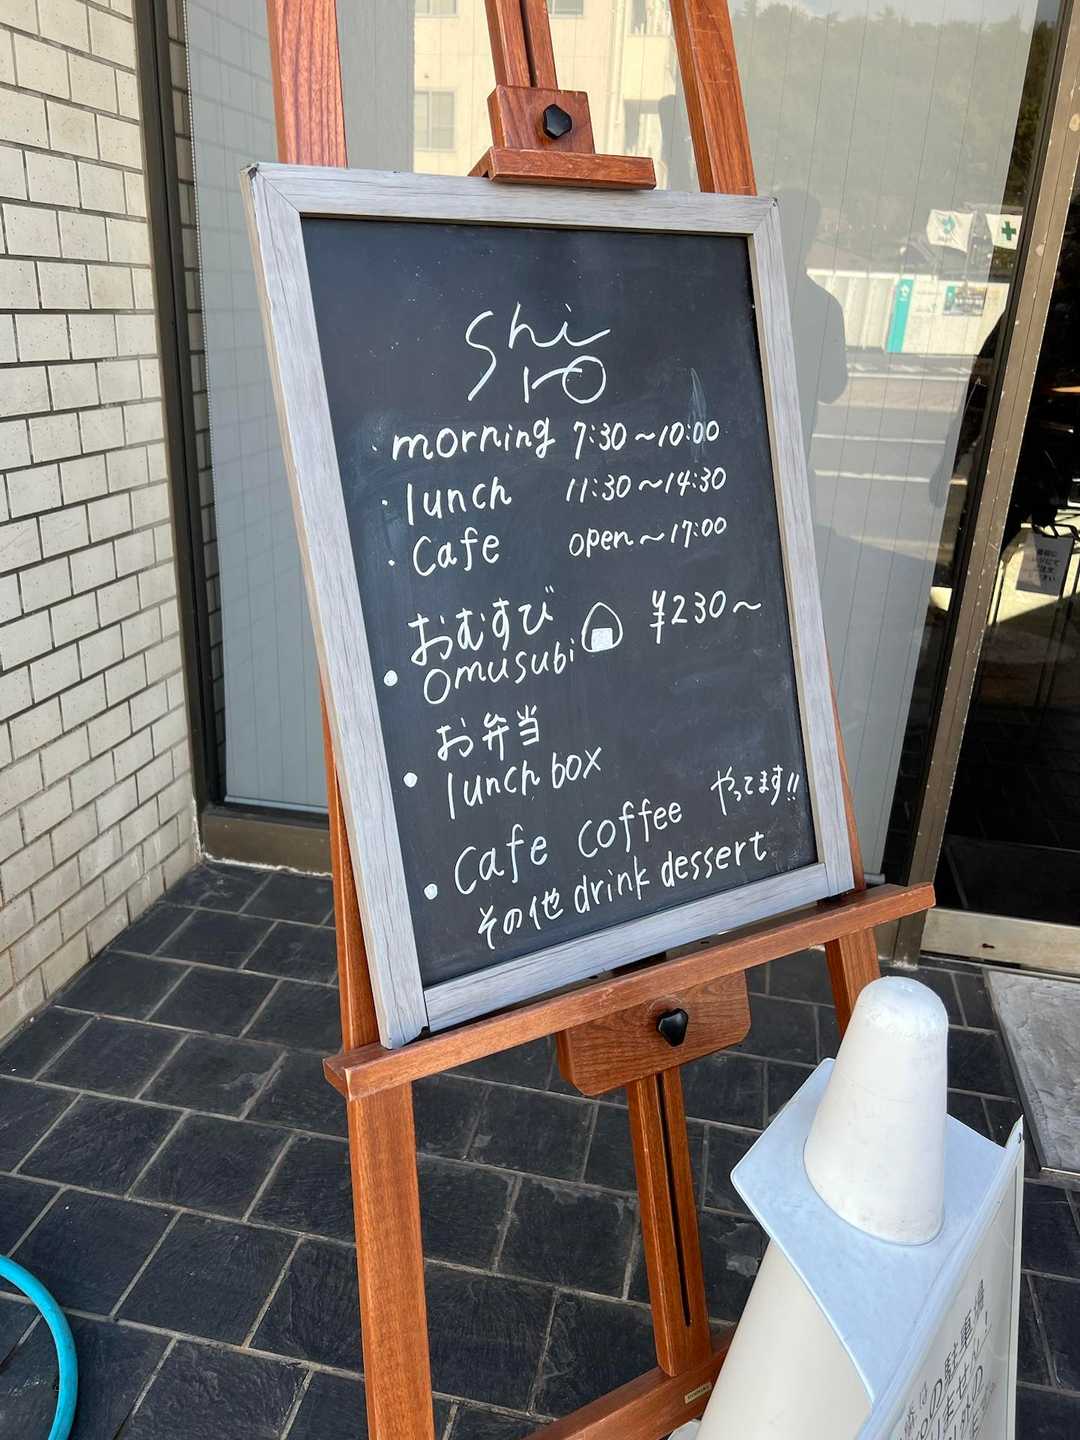 Shi
ro
・morning 7:30〜10:00
・lunch 11:30〜14:30
・Cafe open〜17:00
おむすび ¥230〜
● omusubi
お弁当
● lunch box
やってます!!
● Cafe coffee
その他 drink dessert